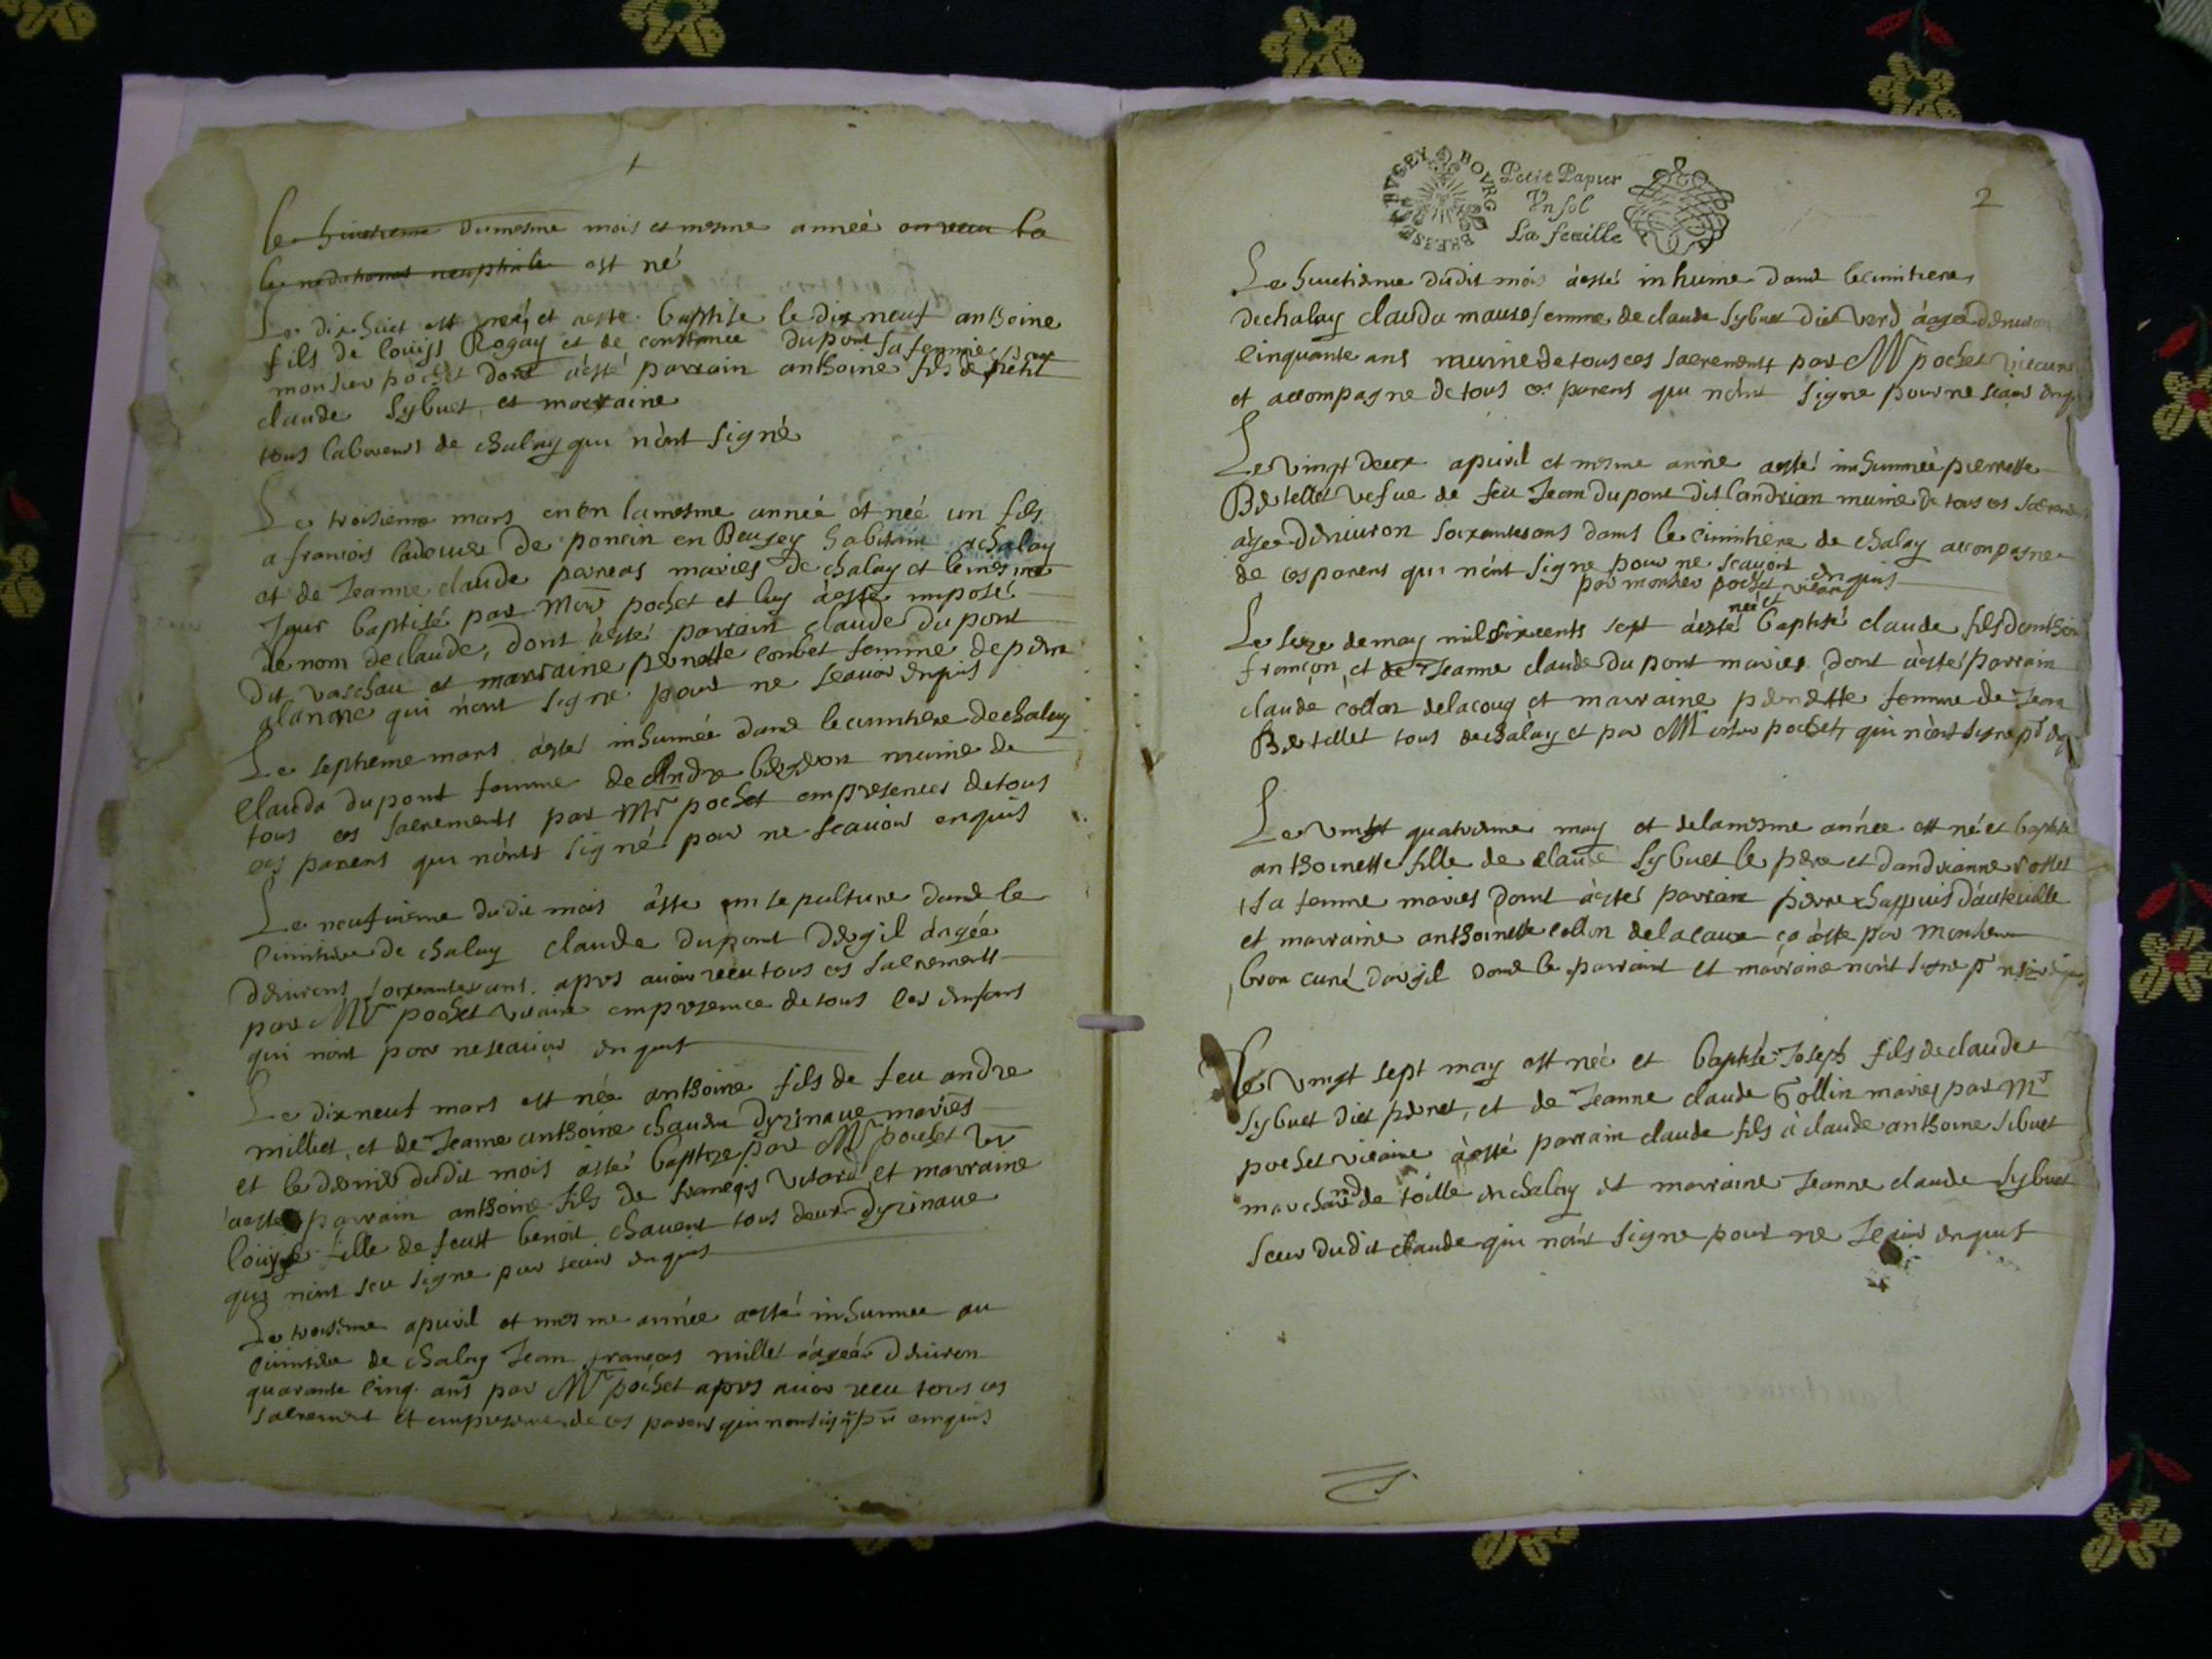 le huictieme dumesme mois et mesme année on receu la
le est né
Le dixhuict est neé, et aeste baptise le dix neuf anthoine
fils de louijs Rogay et de constance dupont sa femme par
monsier pochet dont àesté parrain anthoine fils de petit
claude Sybuet, et marraine
tous laboureurs de chaley qui nònt signé
Le troisieme mars en lamesme année et néé un fils
a francois ladouer De poncin en Beugey habitant achaley
et de Jeanne claude perreas mariés de chaley et lemesme
Jour baptisé par Mons pochet et luy àesté imposé
le nom declaude, dont àesté parrain claude dupont
dit vaschau et marraine pernette combet femme de pierre
qui nònt signe pour ne scauoir enquis
Le septieme mars àesté inhumeé dans lecimitiere dechaley
Clauda dupont femme de Andre munie de
tous ces sacrements par Mr pochet empresences detous
ces parens qui nònts signé pour ne scauoir enquis
Le neufuieme dudit mois àste en sepulture dans le
Cimitiere de chaley claude dupont Dergil àagée
Denuiront soixantes ans. apres auoir receu tous ces sacrements
par Mr pochet vicaire empresence detous les enfans
qui nònt pour nescauoir enquis
Le dixneuf mars est née anthoine fils de feu andre
milliet, et de Jeanne anthoine chauen Dyzinaue mariés
et le dernier dudit mois àsté baptize par Mr pochet vic
àeste parrain anthoine fils de françois vitard et marraine
louise fille de feust benoit chauent tous deux dyzinaue
qui nònt sceu signe pour scauoir enquis
Le troisieme apuril et mesme année aesté inhummee au
Cimitiere de chaley Jean françois millet àageé Denuiron
quarante Cinq ans par Mr pochet apres auoir receu tous ces
sacrement et empresence de ces parens qui nont signé pr enquis
BVGEY BOVRG BRESSE
Petit Papier
Vn sol
La feuille
2
Le huictieme dudit mois àesté inhume dans lecimitiere
dechaley clauda mause femme de claude Sybuet Dict verd àagée Denuiron
Cinquante ans munie detous ces sacrements par Mr pochet vicaire
et accompagne de tous ces parens qui nònt signe pour ne scauoir enq
Le vingt deux apuril et mesme anne aesté inhummeé pierrette
Betellet vefue de feu Jean dupont dit landrian munie de tous ces sacrements
àagee Denuiron soixantes ans dans le cimitiere de chaley accompagnee
de ces parens qui nònt signe pour ne scauoir enquis
par monsier pochet vicaire
Le seze demay mil sixcents sept àesté née et baptisé claude fils danthoi
françon, et de Jeanne claude du pont mariés dont àesté parrain
claude collon delacoug et marraine pernette femme de Jean
Betellet tous dechàley et par Mr pochet, qui nònt signe pr
Le vingt quatrieme may et delamesme année est né et baptisé
anthoinette fille de claude Sybuet le pere et dandrianne
sa femme mariés dont àesté parrain pierre chappuis dàuteuille
et marraine anthoinette collon delacaux ça àste par monsieur
bron curé dorgil dont le parraint et marraine nònt signe pr
Le vingt sept may est néé et baptisé Joseph fils declaude
Sybuet dict pernet, et de Jeanne claude Gollin mariés par Mr
pochet vicaire àesté parrain claude fils à claude anthoine Sibuet
marchand de toille en chaley et marraine Jeanne claude Sybuet
Seur dudit claude qui nònt signe pour ne Scauoir enquis